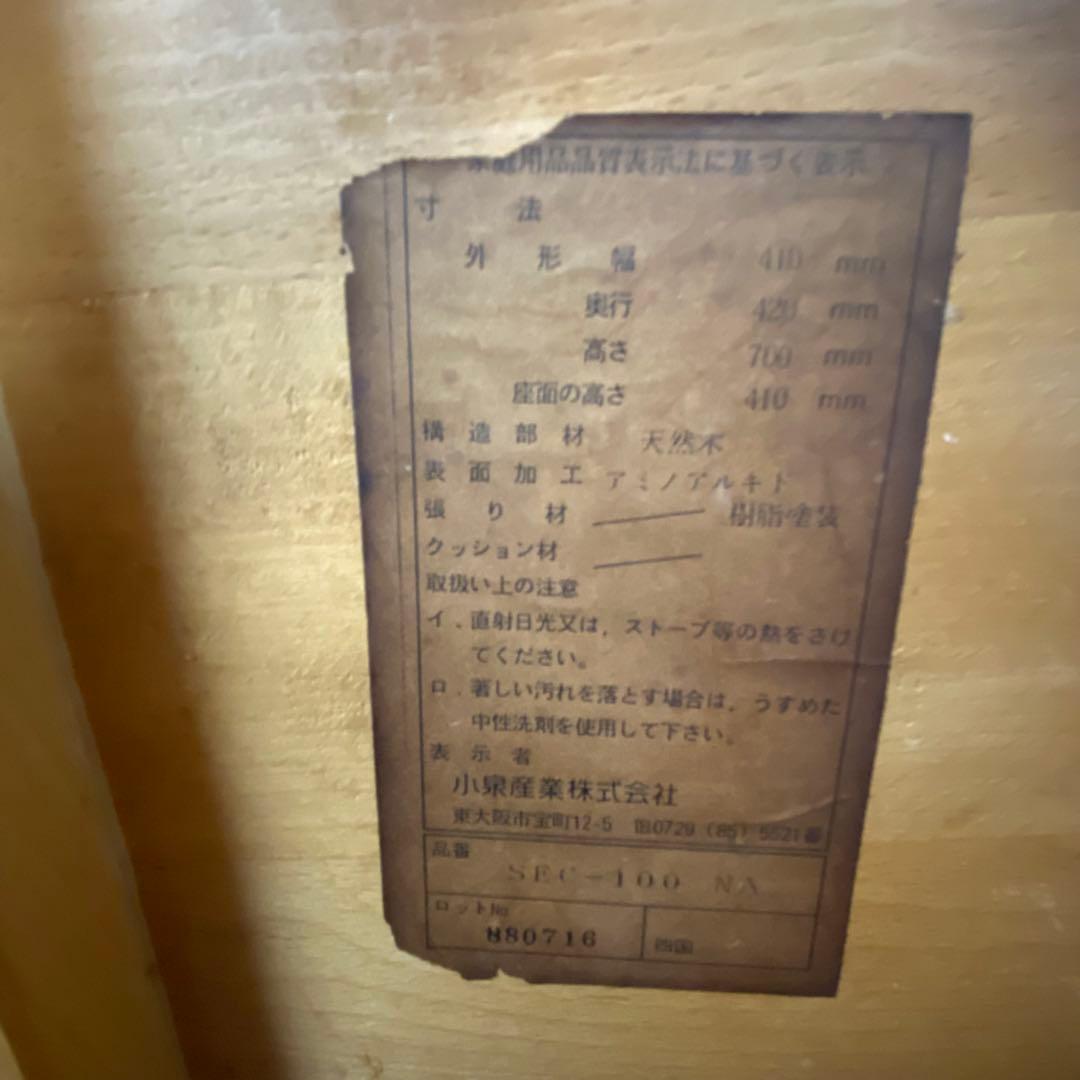 家庭用品品質表示法に基づく表示
寸 法
外 形 幅 410 mm
奥行 420 mm
高さ 700 mm
座面の高さ 410 mm
構 造 部 材 天然木
表 面 加 工 アミノアルキト
張 り 材 樹脂塗装
クッション材
取扱い上の注意
イ．直射日光又は，ストーブ等の熱をさけ
てください。
ロ．著しい汚れを落とす場合は，うすめた
中性洗剤を使用して下さい。
表 示 者
小泉産業株式会社
東大阪市宝町12-5 ☎0729（85）5521番
品番
SEC-100 NA
ロット№
880716 四国